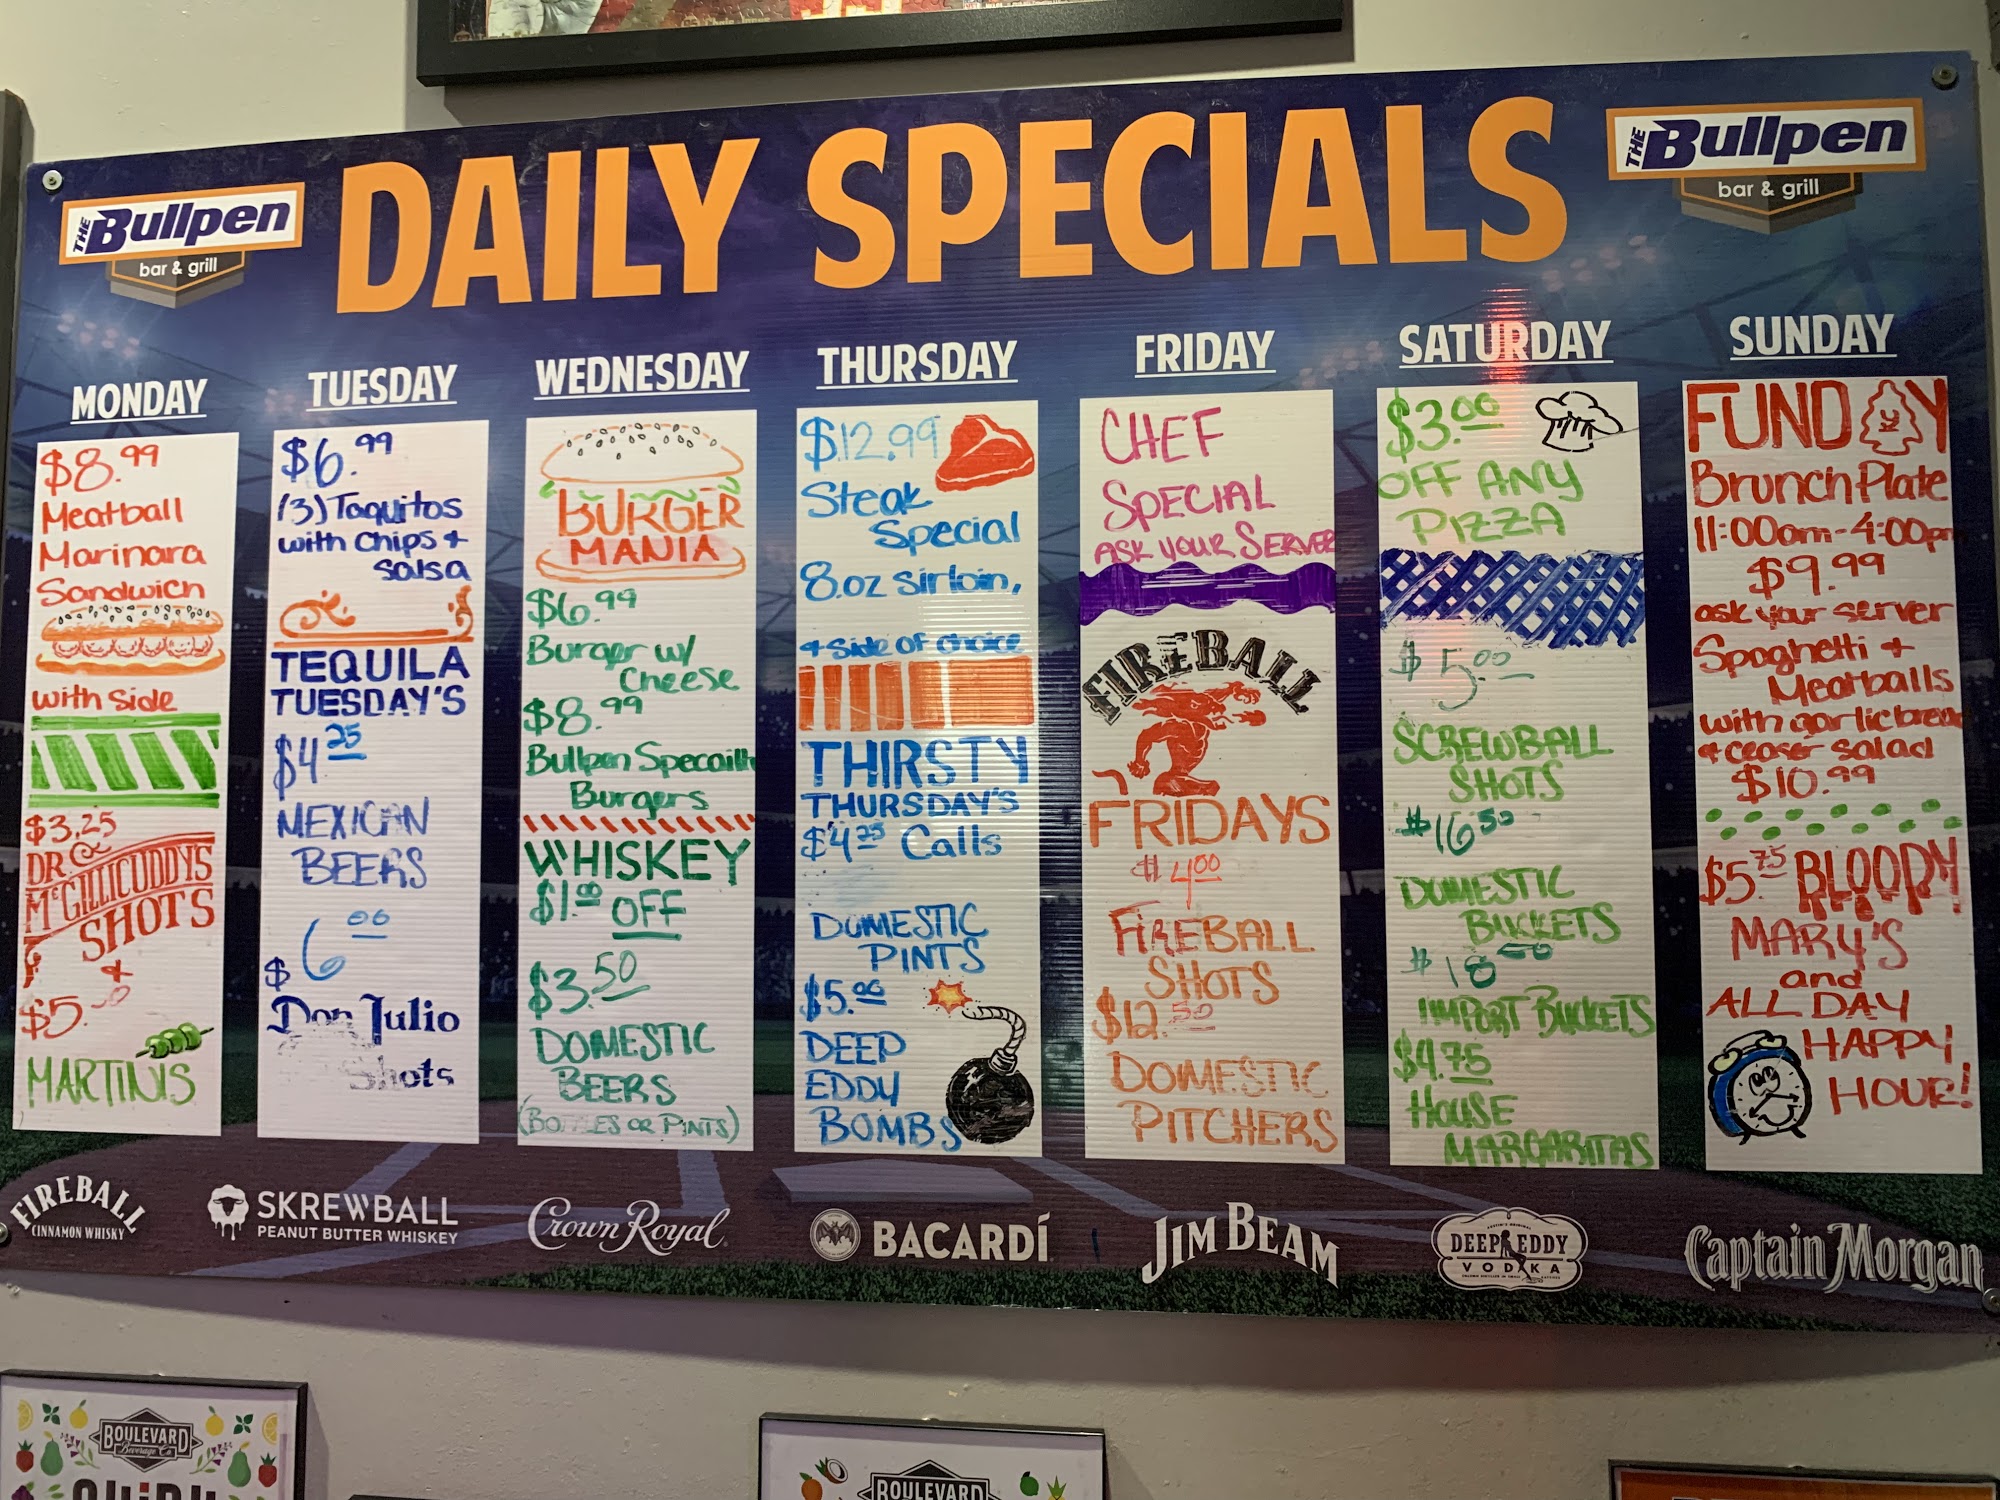 THE Bullpen
bar & grill
DAILY SPECIALS
THE Bullpen
bar & grill
MONDAY
$8.99
Meatball
Marinara
Sandwich
with side
$3.25
DR
McGILLICUDDYS
SHOTS
&
$5.
MARTINIS
TUESDAY
$6.99
(3) Taquitos
with chips &
salsa
TEQUILA
TUESDAY'S
$4.25
MEXICAN
BEERS
$6.00
Don Julio
Shots
WEDNESDAY
BURGER
MANIA
$6.99
Burger w/
Cheese
$8.99
Bullpen
Burgers
WHISKEY
$1.00 OFF
$3.50
DOMESTIC
BEERS
(BOTTLES OR PINTS)
THURSDAY
$12.99
Steak
Special
8.oz sirloin,
& side of choice
THIRSTY
THURSDAY'S
Calls
DOMESTIC
PINTS
$5.00
DEEP
EDDY
BOMBS
FRIDAY
CHEF
SPECIAL
ASK YOUR SERVER
FIREBALL
FRIDAYS
$4.00
FIREBALL
SHOTS
$12.50
DOMESTIC
PITCHERS
SATURDAY
$3.00
OFF ANY
PIZZA
$5.00
SCREWBALL
SHOTS
$16.50
DOMESTIC
BUCKETS
$18.00
IMPORT BUCKETS
$4.75
HOUSE
MARGARITAS
SUNDAY
FUNDAY
Brunch Plate
11:00am-4:00pm
$9.99
ask your server
Spaghetti &
Meatballs
with garlic bread
& ceaser salad
$10.99
$5.75 BLOODY
MARY'S
and
ALL DAY
HAPPY
HOUR!
FIREBALL
CINNAMON WHISKY
SKREWBALL
PEANUT BUTTER WHISKEY
Crown Royal
BACARDÍ
JIM BEAM
DEEP EDDY
VODKA
Captain Morgan
BOULEVARD
Beverage Co
BOULEVARD